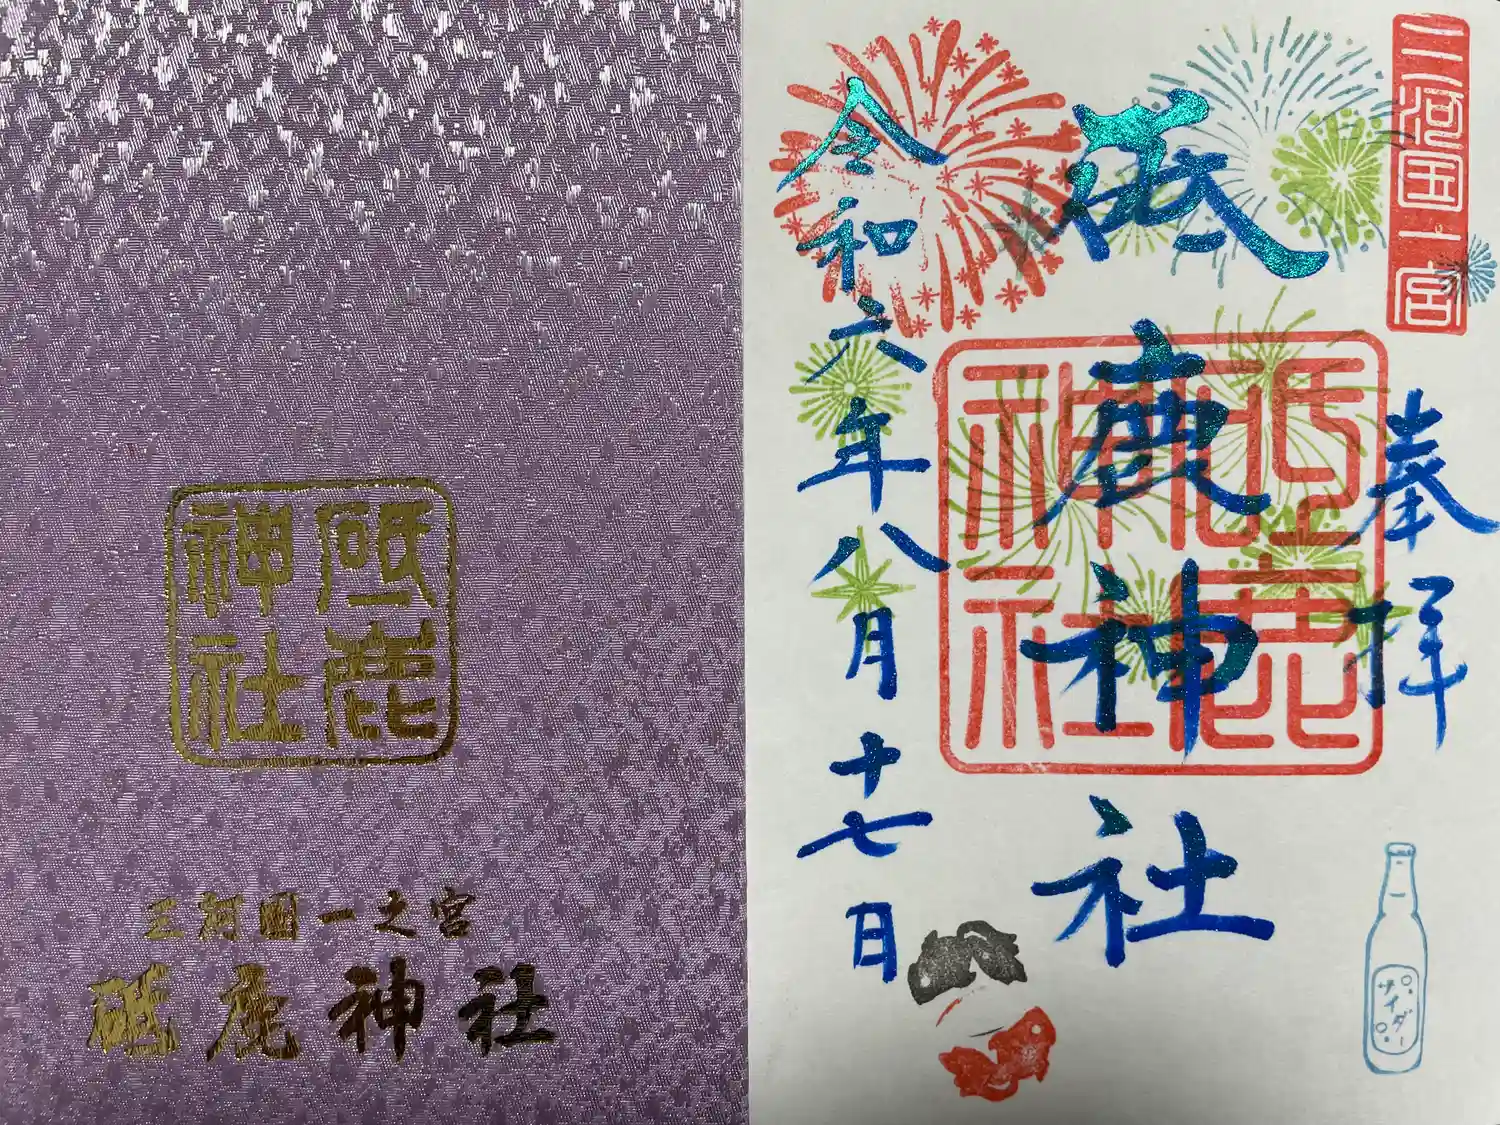 砥鹿
神社
三河国一之宮
砥鹿神社
三河国一宮
奉拝
砥鹿神社
砥鹿
神社
令和六年八月十七日
サイダー